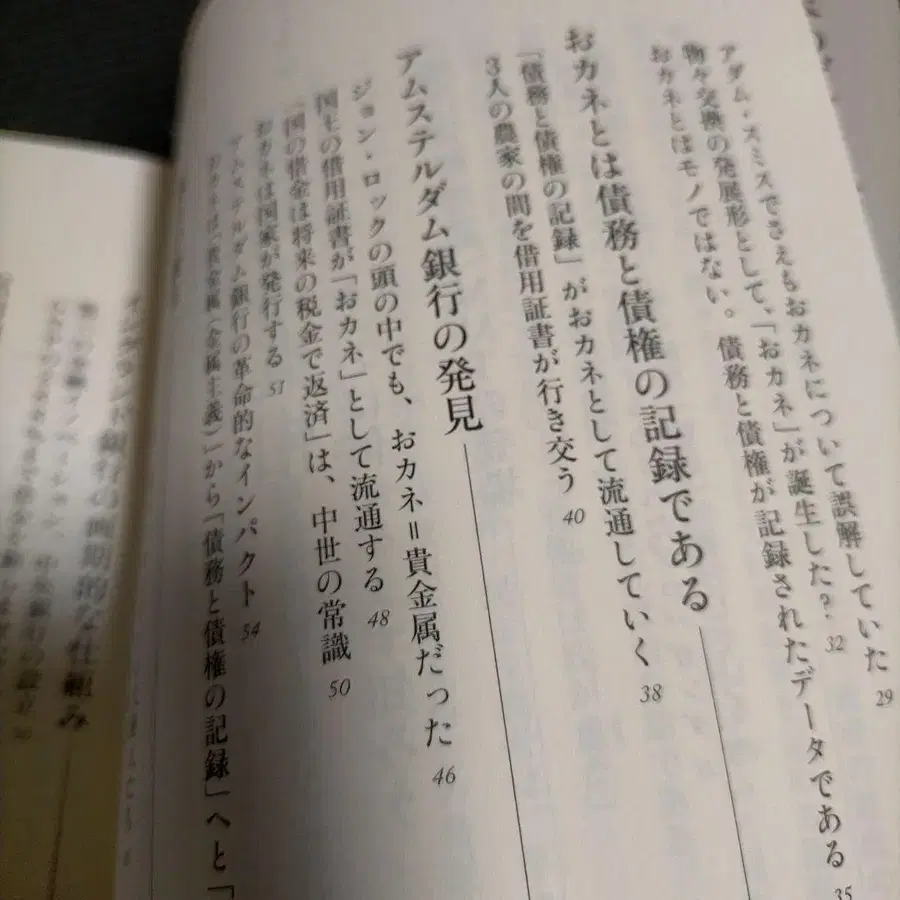 アダム・スミスでさえもおカネについて誤解していた 29
物々交換の発展形として、「おカネ」が誕生した? 32
おカネとはモノではない。債務と債権が記録されたデータである 35
おカネとは債務と債権の記録である
「債務と債権の記録」がおカネとして流通していく 38
3人の農家の間を借用証書が行き交う 40
アムステルダム銀行の発見
ジョン・ロックの頭の中でも、おカネ=貴金属だった 46
国王の借用証書が「おカネ」として流通する 48
「国の借金は将来の税金で返済」は、中世の常識 50
おカネは国家が発行する 51
アムステルダム銀行の革命的なインパクト 54
おカネは「貴金属(金属主義)」から「債務と債権の記録」へと「
イングランド銀行の画期的な仕組み